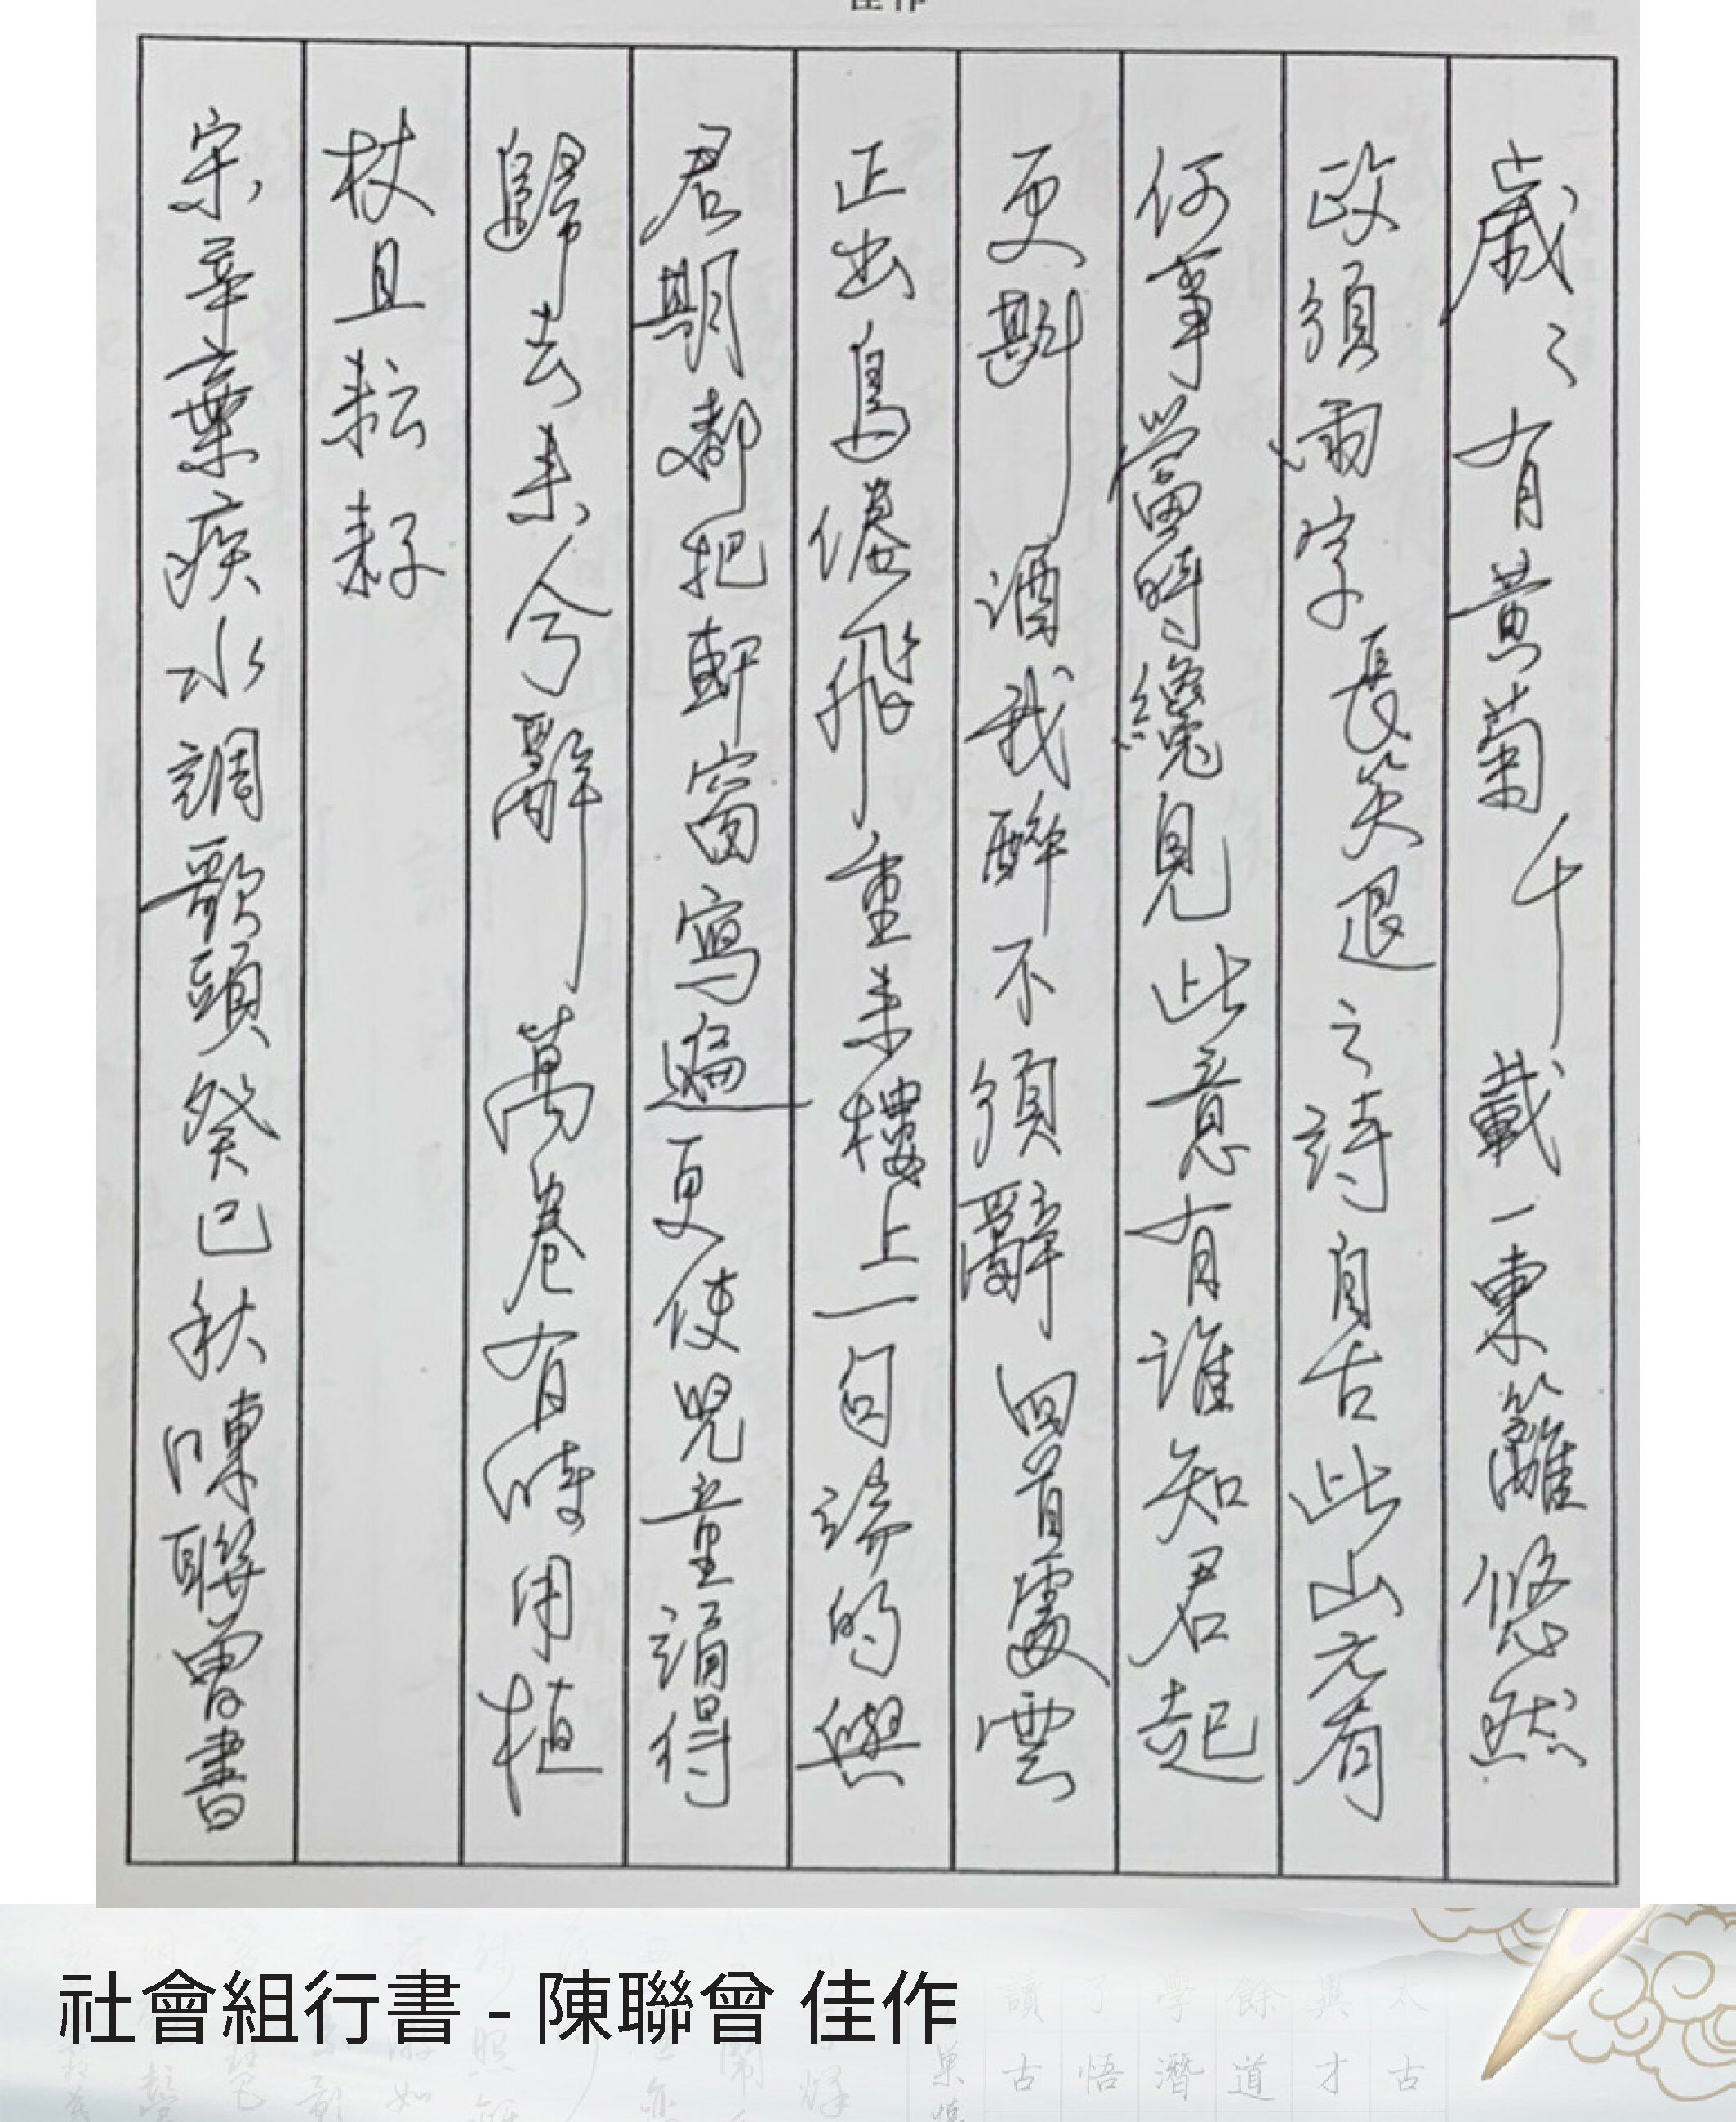 佳作
歲〻有黃菊千載一東籬悠然
政須兩字長笑退之詩自古此山元有
何事當時纔見此意有誰知君起
更斟酒我醉不須辭回首處雲
正出鳥倦飛重來樓上一句端的與
君期都把軒窗寫遍更使兒童誦得
歸去來兮辭萬卷有時用植
杖且耘耔
宋辛棄疾水調歌頭癸巳秋陳聯曾書
社會組行書 - 陳聯曾 佳作
讀了學餘與太
古悟潛道才古